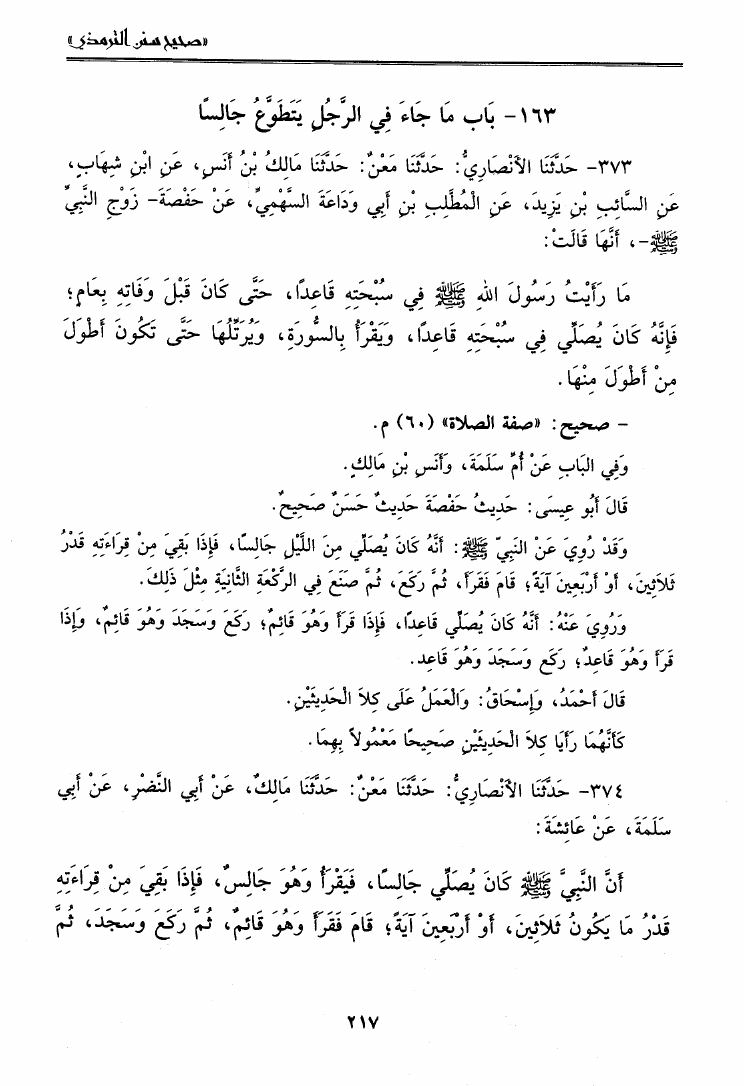 «صحيح سنن الترمذي»
١٦٣- بَاب مَا جَاءَ فِي الرَّجُلِ يَتَطَوَّعُ جَالِسًا
٣٧٣- حَدَّثَنَا الأَنْصَارِيُّ: حَدَّثَنَا مَعْنٌ: حَدَّثَنَا مَالِكُ بْنُ أَنَسٍ، عَنِ ابْنِ شِهَابٍ،
عَنِ السَّائِبِ بْنِ يَزِيدَ، عَنِ الْمُطَّلِبِ بْنِ أَبِي وَدَاعَةَ السَّهْمِيِّ، عَنْ حَفْصَةَ- زَوْجِ النَّبِيِّ
ﷺ-، أَنَّهَا قَالَتْ:
مَا رَأَيْتُ رَسُولَ اللهِ ﷺ فِي سُبْحَتِهِ قَاعِدًا، حَتَّى كَانَ قَبْلَ وَفَاتِهِ بِعَامٍ؛
فَإِنَّهُ كَانَ يُصَلِّي فِي سُبْحَتِهِ قَاعِدًا، وَيَقْرَأُ بِالسُّورَةِ، وَيُرَتِّلُهَا حَتَّى تَكُونَ أَطْوَلَ
مِنْ أَطْوَلَ مِنْهَا.
- صحيح: «صفة الصلاة» (٦٠) م.
وَفِي الْبَاب عَنْ أُمِّ سَلَمَةَ، وَأَنَسِ بْنِ مَالِكٍ.
قَالَ أَبُو عِيسَى: حَدِيثُ حَفْصَةَ حَدِيثٌ حَسَنٌ صَحِيحٌ.
وَقَدْ رُوِيَ عَنْ النَّبِيِّ ﷺ: أَنَّهُ كَانَ يُصَلِّي مِنَ اللَّيْلِ جَالِسًا، فَإِذَا بَقِيَ مِنْ قِرَاءَتِهِ قَدْرُ
ثَلاَثِينَ، أَوْ أَرْبَعِينَ آيَةً؛ قَامَ فَقَرَأَ، ثُمَّ رَكَعَ، ثُمَّ صَنَعَ فِي الرَّكْعَةِ الثَّانِيَةِ مِثْلَ ذَلِكَ.
وَرُوِيَ عَنْهُ: أَنَّهُ كَانَ يُصَلِّي قَاعِدًا، فَإِذَا قَرَأَ وَهُوَ قَائِمٌ؛ رَكَعَ وَسَجَدَ وَهُوَ قَائِمٌ، وَإِذَا
قَرَأَ وَهُوَ قَاعِدٌ؛ رَكَعَ وَسَجَدَ وَهُوَ قَاعِد.
قَالَ أَحْمَدُ، وَإِسْحَاقُ: وَالْعَمَلُ عَلَى كِلاَ الْحَدِيثَيْنِ.
كَأَنَّهُمَا رَأَيَا كِلاَ الْحَدِيثَيْنِ صَحِيحًا مَعْمُولاً بِهِمَا.
٣٧٤- حَدَّثَنَا الأَنْصَارِيُّ: حَدَّثَنَا مَعْنٌ: حَدَّثَنَا مَالِكٌ، عَنْ أَبِي النَّضْرِ، عَنْ أَبِي
سَلَمَةَ، عَنْ عَائِشَةَ:
أَنَّ النَّبِيَّ ﷺ كَانَ يُصَلِّي جَالِسًا، فَيَقْرَأُ وَهُوَ جَالِسٌ، فَإِذَا بَقِيَ مِنْ قِرَاءَتِهِ
قَدْرُ مَا يَكُونُ ثَلاَثِينَ، أَوْ أَرْبَعِينَ آيَةً؛ قَامَ فَقَرَأَ وَهُوَ قَائِمٌ، ثُمَّ رَكَعَ وَسَجَدَ، ثُمَّ
٢١٧